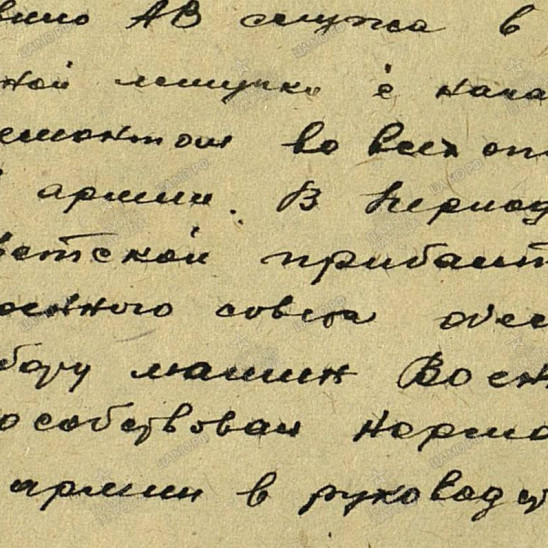 АВ служа в
ной
ремонтом во всех оп
армии. В период
ветской прибалт
оенного совета обес
бору машин Воен
особствовал норма
армии в руковод